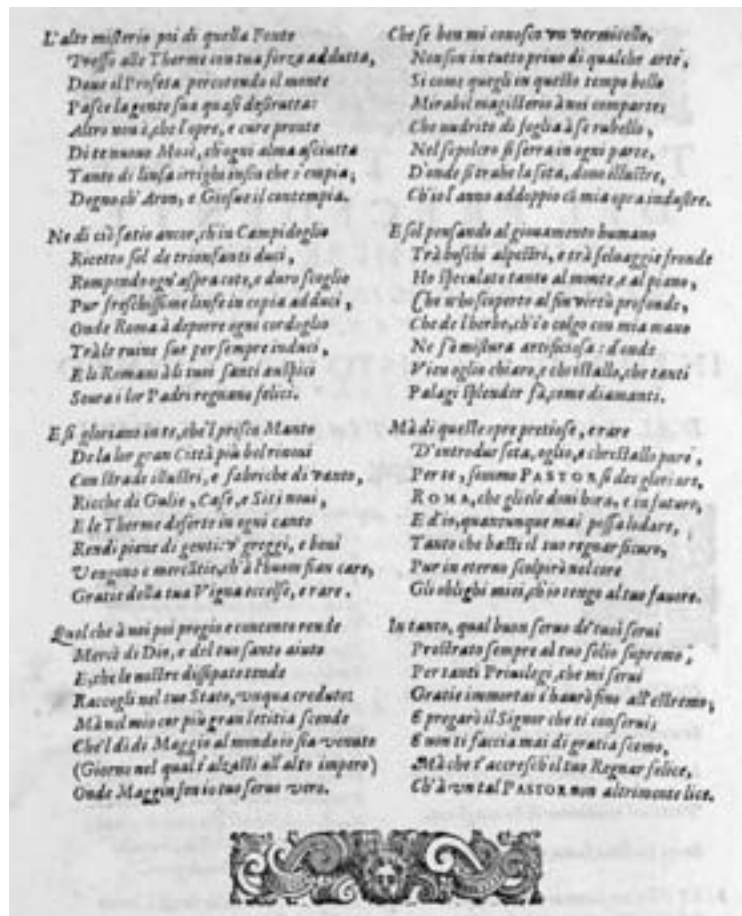 L'alto misterio poi di quella Fonte
Presso alle Therme con tua forza addutta,
Doue il Profeta percotendo il monte
Pasce la gente sua quasi destrutta:
Altro non è, che l'opre, e cure pronte
Di te nuouo Mosè, ch'ogni alma asciutta
Tanto di linfa irrighi infin che s'empia;
Degno ch'Aron, e Giosue il contempia.
Ne di ciò satio ancor, ch'in Campidoglio
Ricetto sol de trionfanti duci,
Rompendo ogn'aspra cote, e duro scoglio
Pur freschissime linfe in copia adduci,
Onde Roma à deporre ogni cordoglio
Trà le ruine sue per sempre induci,
E li Romani à li tuoi santi auspici
Soura i lor Padri regnano felici.
E si gloriano in te, che'l prisco Manto
De la lor gran Città più bel rinoui
Con strade illustri, e fabriche di vanto,
Ricche di Gulie, Case, e Siti noui,
E le Therme deserte in ogni canto
Rendi piene di genti: v' greggi, e boui
Vengono e mercātie, ch'à l'huom sian care,
Gratie della tua Vigna eccelse, e rare.
Quel che à noi poi pregio e contento rende
Mercè di Dio, e del tuo santo aiuto
E, che le nostre dissipate
Raccogli nel tuo Stato, vnqua credute:
Mà nel mio cor più gran letitia scende
Che'l dì di Maggio al mondo io sia venuto
(Giorno nel qual t'alzasti all'alto impero)
Onde Maggin son io tuo seruo vero.
Che se ben mi conosco vn vermicello,
Non son in tutto priuo di qualche arte,
Si come quegli in questo tempo bello
Mirabil magisterio à noi comparte;
Che nudrito di foglia à se rubello,
Nel sepolcro si serra in ogni parte,
D'onde si trahe la seta, dono illustre,
Ch'io l'anno addoppio cō mia opra industre.
E sol pensando al giouamento humano
Trà boschi alpestri, e trà seluaggie fronde
Ho speculato tanto al monte, e al piano,
Che v'ho scoperto al fin virtù profonde,
Che de l'herbe, ch'io colgo con mia mano
Ne fò mistura artificiosa: d'onde
Vien oglio chiaro, e christallo, che tanti
Palagi splender fà, come diamanti.
Mà di queste opre pretiose, e rare
D'introdur seta, oglio, e christallo puro,
Per te, sommo PASTOR si dee gloriare,
ROMA, che gliele doni hora, e in futuro,
Ed'io, quantunque mai possa lodare,
Tanto che basti il tuo regnar sicuro,
Pur in eterno scolpirò nel core
Gli oblighi miei, ch'io tengo al tuo fauore.
In tanto, qual buon seruo de' tuoi serui
Prostrato sempre al tuo solio supremo,
Per tanti Priuilegi, che mi serui
Gratie immortai t'haurò fino all'estremo;
E pregarò il Signor che ti conserui;
E non ti faccia mai di gratia scemo,
Mà che t'accresch'il tuo Regnar felice,
Ch'à vn tal PASTOR non altrimente lice.